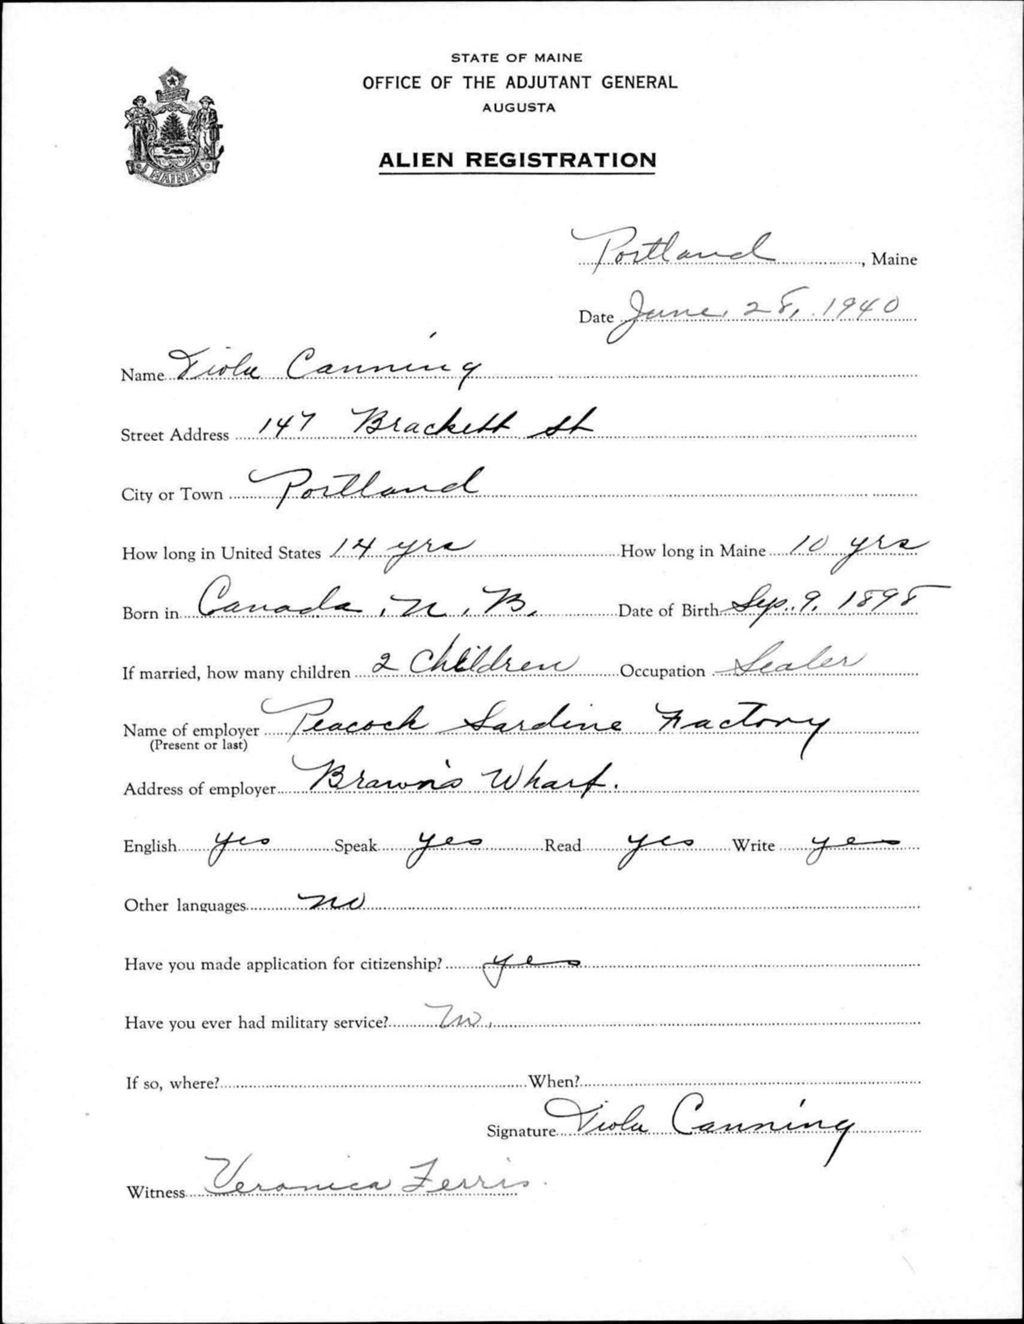 STATE OF MAINE
OFFICE OF THE ADJUTANT GENERAL
AUGUSTA
ALIEN REGISTRATION
MAINE
Portland, Maine
Date June 28, 1940
Name Viola Canning
Street Address 147 Brackett St
City or Town Portland
How long in United States 14 yrs How long in Maine 10 yrs
Born in Canada, N. B. Date of Birth Sep. 9, 1898
If married, how many children 2 Children Occupation Sealer
Name of employer Peacock Sardine Factory
(Present or last)
Address of employer Brown's Wharf.
English yes Speak yes Read yes Write yes
Other languages no
Have you made application for citizenship? yes
Have you ever had military service? No.
If so, where? When?
Signature Viola Canning
Witness Veronica Ferris.